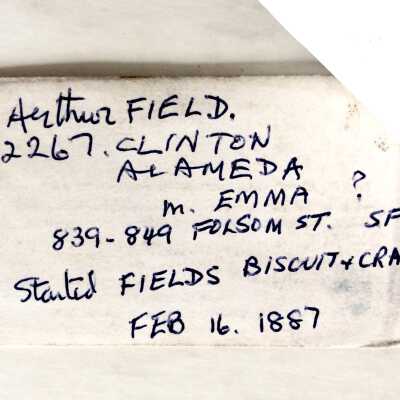 Arthur FIELD.
2267. CLINTON
ALAMEDA
m. EMMA ?
839-849 FOLSOM ST. SF
Started FIELDS BISCUIT & CRA
FEB 16. 1887